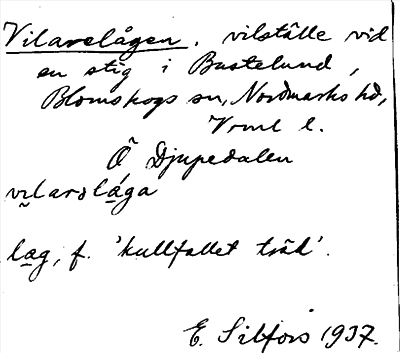 Vilarelågen, vilställe vid
en stig i Bustelund,
Blomskogs sn, Nordmarks hd,
Vrml l.
Õ Djupedalen
vilarslåga
låg, f. 'kullfallet träd'.
E. Silfors 1937.